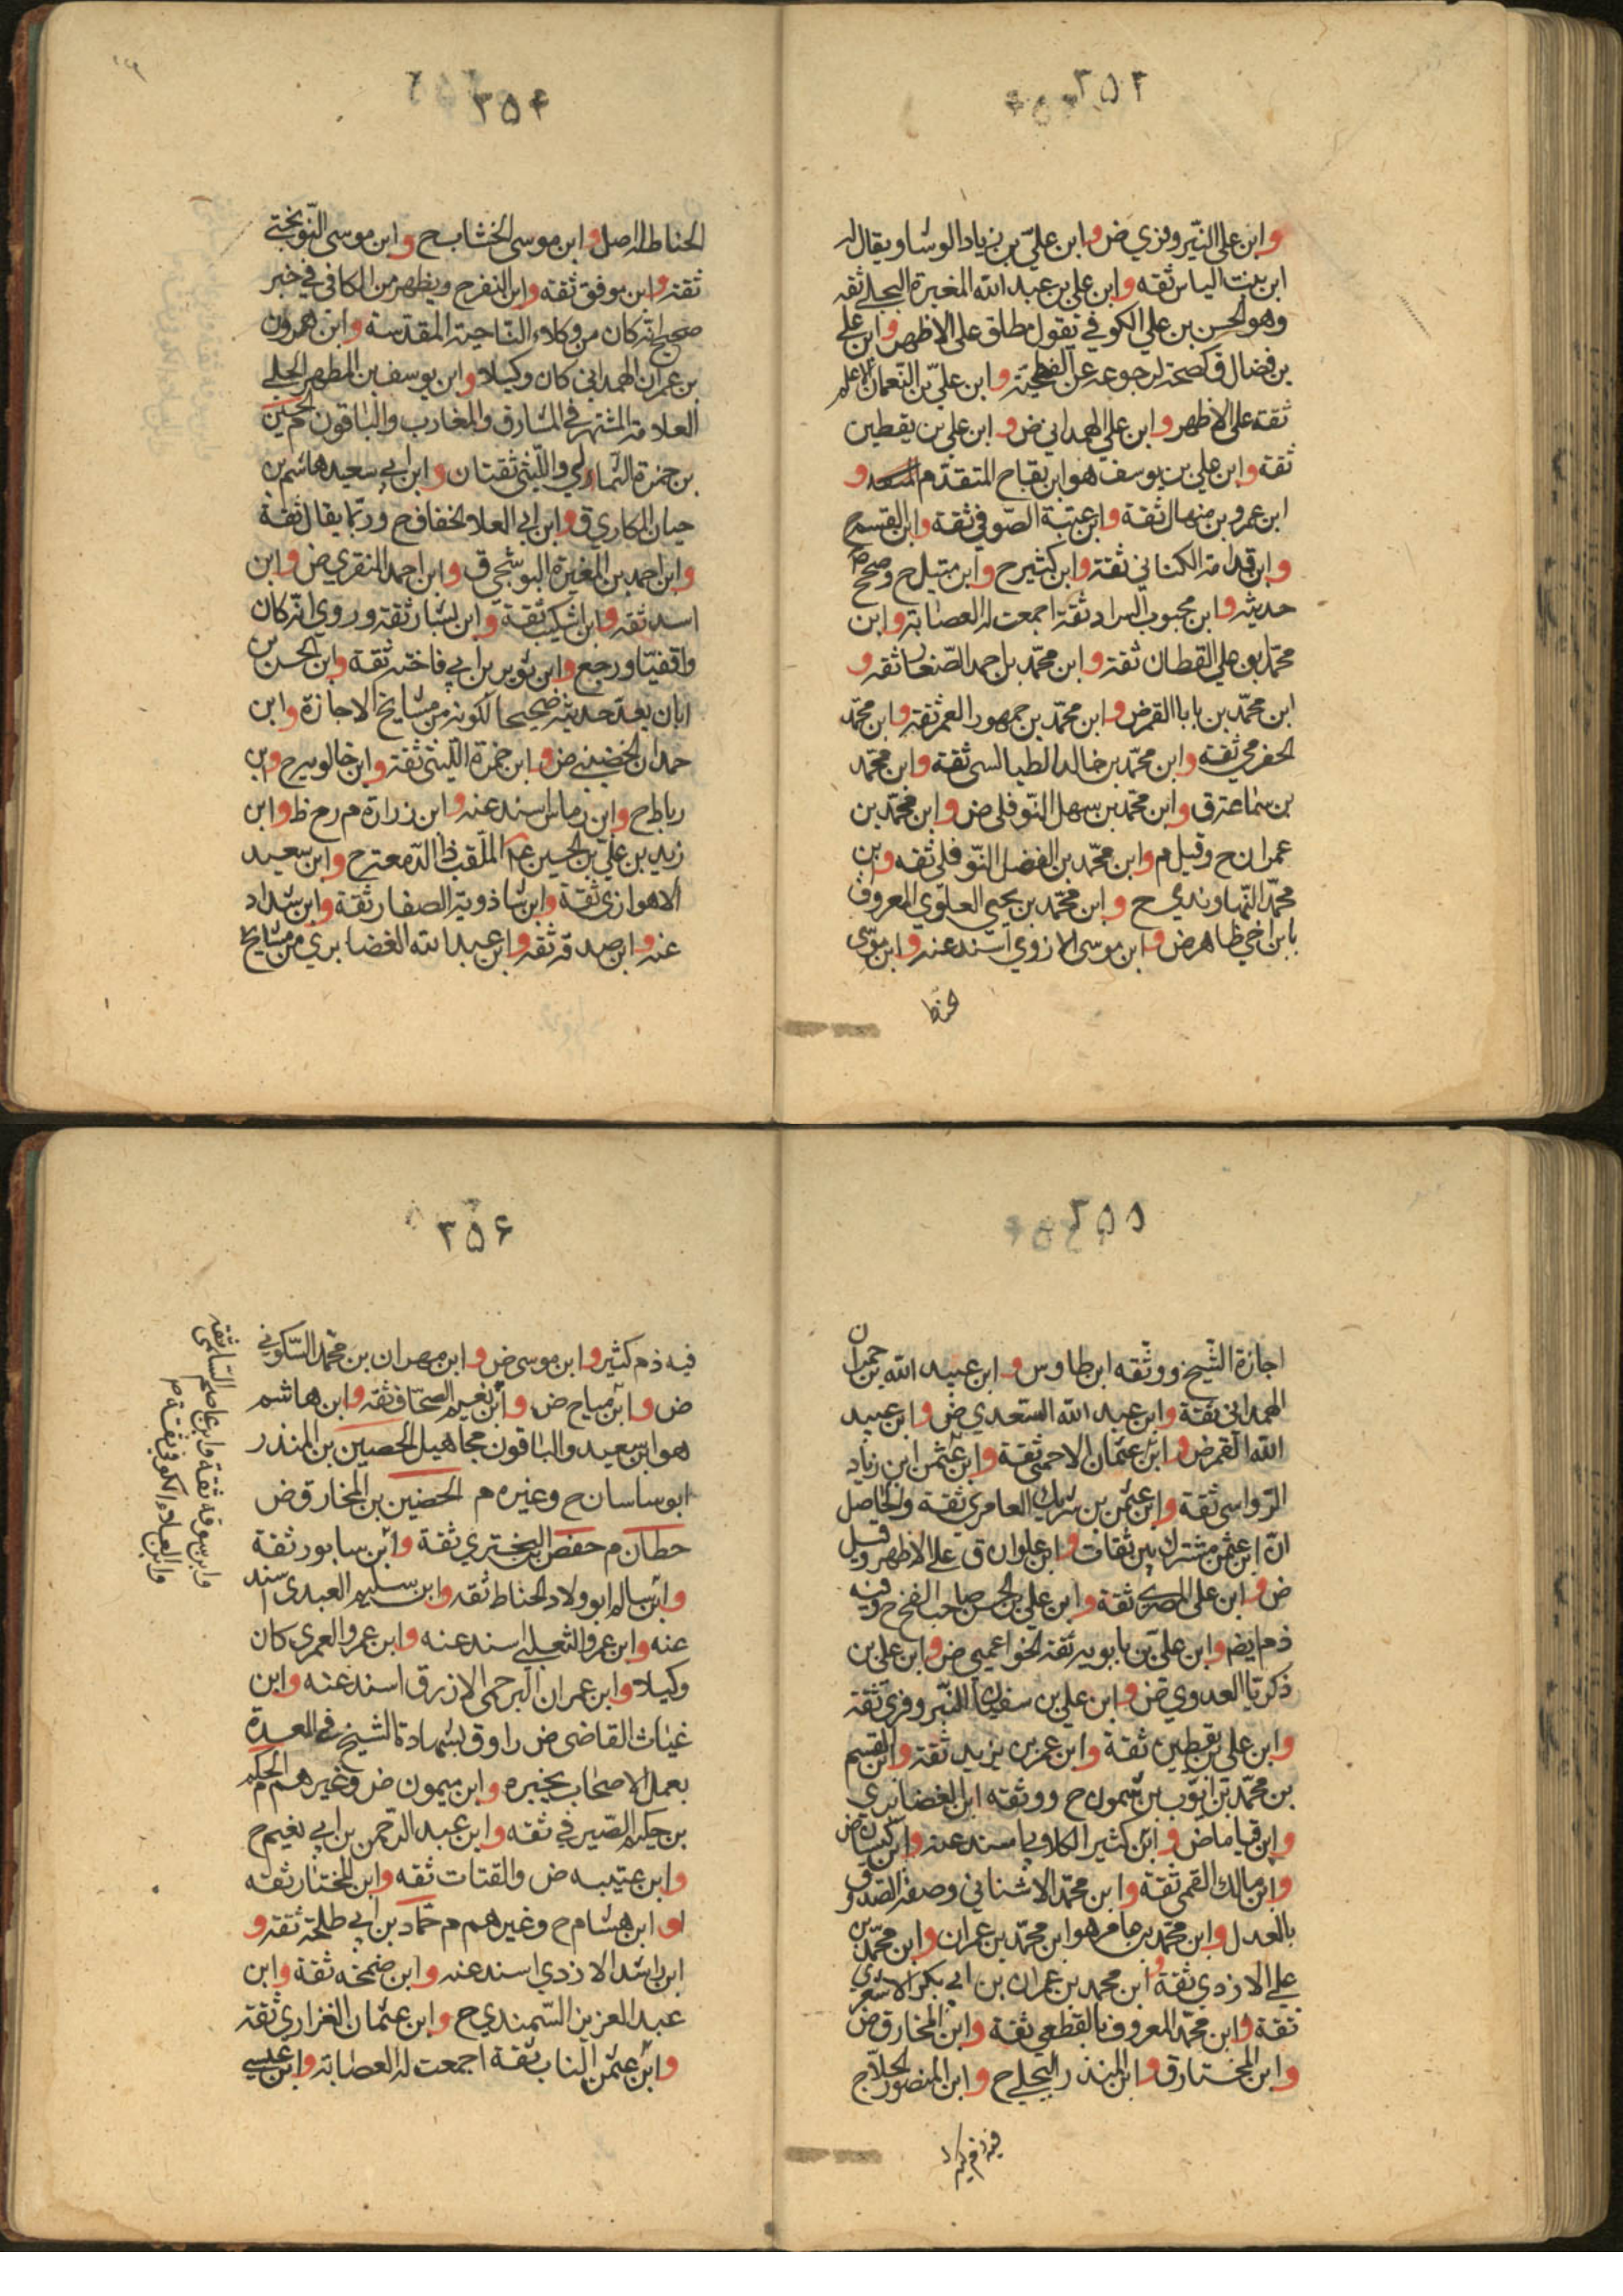 ٣٥٣
وابن علي النيروزي ض وابن علي بن زياد الوشا ويقال له
ابن بنت الياس ثقه وابن علي بن عبد الله المغيرة البجلي ثقه
وهو الحسن بن علي الكوفي بقول مطلق على الاظهر وابن علي
بن فضال ق كصحة لرجوعه عن الفطحية وابن علي بن النعمان الاعلم
ثقة على الاظهر وابن علي الهمداني ض وابن علي بن يقطين
ثقة وابن علي بن يوسف هو ابن بقاح المتقدم و
ابن عمرو بن منهال ثقة وابن عنبة الصوفي ثقة وابن القسم ح
وابن قدامة الكناني ثقة وابن كثير ح وابن متيل ح وصحح
حديثه وابن محبوب السراد ثقة اجمعت له العصابة وابن
محمد بو علي القطان ثقة وابن محمد بن احمد الصفار ثقه و
ابن محمد بن بابا القمي ض وابن محمد بن جمهور العمي ثقة وابن محمد
الحضرمي ثقه وابن محمد بن خالد الطيالسي ثقة وابن محمد
بن سماعة ق وابن محمد بن سهل النوفلي ض وابن محمد بن
عمران ح وقيل م وابن محمد بن الفضل النوفلي ثقه وابن
محمد النهاوندي ح وابن محمد بن يحيى العلوي المعروف
بابن اخي طاهر ض وابن موسى الازدي اسند عنه وابن موسى
الحناط
٣٥٤
الحناط له اصل وابن موسى الخشاب ح وابن موسى النوبختي
ثقة وابن موفق ثقه وابن النضر ح ويظهر من الكافي في خبر
صحيح انه كان من وكلاء الناحية المقدسة وابن هرون
بن عمران الهمداني كان وكيلا وابن يوسف بن المطهر الحلي
العلامة المشتهر في المشارق والمغارب والباقون م الحسين
بن حمزة الثمالي والليثي ثقتان وابن ابي سعيد هاشم بن
حيان المكاري ق وابن ابي العلا الخفاف ح وربما يقال ثقة
وابن احمد بن المغيرة البوشنجي ق وابن احمد المنقري ض وابن
اسد ثقه وابن اشكيب ثقة وابن بشار ثقه وروي انه كان
واقفيا ورجع وابن ثوير بن ابي فاخته ثقة وابن الحسن بن
ابان يعد حديثه صحيحا لكونه من مشايخ الاجازة وابن
حمدان الخضيني ض وابن حمزة الليثي ثقة وابن خالويه ح وابن
رباط ح وابن رماس اسند عنه وابن زرارة م رح ظ وابن
زيد بن علي بن الحسين ع الملقب ذا الدمعة ح وابن سعيد
الاهوازي ثقة وابن شاذويه الصفار ثقة وابن شداد
عنه وابن صدقه ثقه وابن عبد الله الغضايري من مشايخ
٣٥٥
اجازة الشيخ ووثقه ابن طاوس وابن عبيد الله بن حمران
الهمداني ثقة وابن عبيد الله السعدي ض وابن عبيد
الله القمي ض وابن عثمان الاحمسي ثقة وابن عثمن ابن زياد
الرواسي ثقة وابن عثمن بن شريك العامري ثقة والحاصل
ان ابن عثمن مشترك بين ثقات وابن علوان ق على الاظهر وقيل
ض وابن علي المصري ثقة وابن علي بن الحسن صاحب الفخ ح وفيه
ذم ايضم وابن علي بن بابويه ثقة الخواتيمي ض وابن علي بن
ذكريا العدوي ض وابن علي بن سفيان البزوفري ثقة
وابن علي بن يقطين ثقة وابن عمر بن يزيد ثقة وابن القسم
بن محمد بن ايوب بن شمون ح ووثقه ابن الغضائري
وابن قياما ض وابن كثير الكلابي اسند عنه وابن كيسان ض
وابن مالك القمي ثقة وابن محمد الاشناني وصفه الصدوق
بالعدل وابن محمد بن عامر هو ابن محمد بن عمران وابن محمد بن
علي الازدي ثقة وابن محمد بن عمران بن ابي بكر الاشعري
ثقة وابن محمد المعروف بالقطعي ثقة وابن المخارق ض
وابن المختار ق وابن المنذر البجلي ح وابن المنصور الحلاج
فيه ذم كثير
٣٥٦
فيه ذم كثير وابن موسى ض وابن مهران بن محمد السكوني
ض وابن مياح ض وابن نعيم الصحاف ثقه وابن هاشم
هو ابن سعيد والباقون مجاهيل الحصين بن المنذر
ابو ساسان ح وغيره م الحضين بن المخارق ض
حطان م حفص بن البختري ثقة وابن سابور ثقة
وابن سالم ابو ولاد الحناط ثقه وابن سليم العبدي اسند
عنه وابن عمرو الثعلبي اسند عنه وابن عمرو العمري كان
وكيلا وابن عمران البرجمي الازرق اسند عنه وابن
غياث القاضي ض او ق بشهادة الشيخ في العدة
بعمل الاصحاب بخبره وابن ميمون ض وغيرهم م الحكم
بن حكيم الصيرفي ثقه وابن عبد الرحمن بن ابي نعيم ح
وابن عتيبه ض والقتات ثقه وابن المختار ثقه
وابن هشام ح وغيرهم م حماد بن ابي طلحة ثقه و
ابن راشد الازدي اسند عنه وابن ضمخه ثقة وابن
عبد العزيز السمندي ح وابن عثمان الفزاري ثقة
وابن عثمن الناب ثقة اجمعت له العصابة وابن عيسى
وابن سوقه ثقة وابن عاصم السلمي ثقه
وابن العلاء الكوفي ثقة م